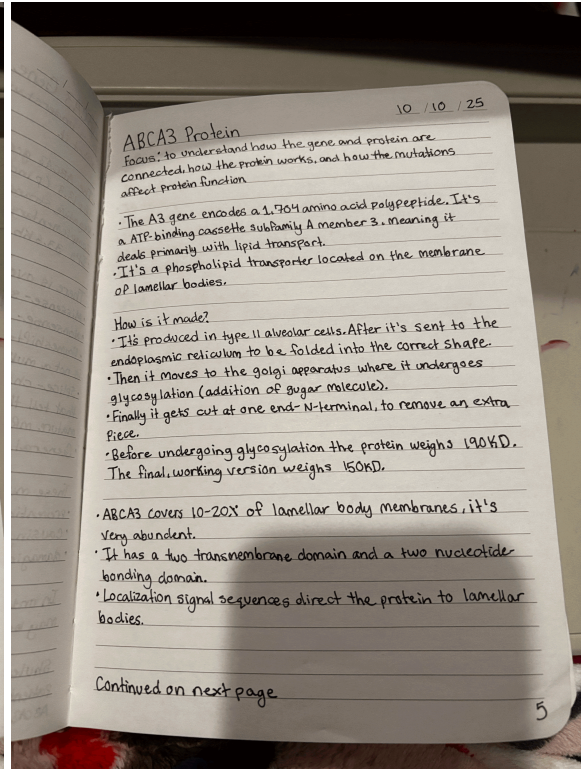 10/10/25
ABCA3 Protein
Focus: to understand how the gene and protein are
connected, how the protein works, and how the mutations
affect protein function
· The A3 gene encodes a 1,704 amino acid polypeptide. It's
a ATP-binding cassette subfamily A member 3, meaning it
deals primarily with lipid transport.
· It's a phospholipid transporter located on the membrane
of lamellar bodies.
How is it made?
· It's produced in type II alveolar cells. After it's sent to the
endoplasmic reticulum to be folded into the correct shape.
· Then it moves to the golgi apparatus where it undergoes
glycosylation (addition of sugar molecule).
· Finally it gets cut at one end- N-terminal, to remove an extra
piece.
· Before undergoing glycosylation the protein weighs 190KD.
The final, working version weighs 150KD.
· ABCA3 covers 10-20% of lamellar body membranes, it's
very abundent.
· It has a two transmembrane domain and a two nucleotide-
bonding domain.
· Localization signal sequences direct the protein to lamellar
bodies.
Continued on next page
5